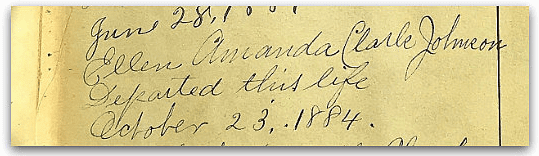 June 28, 18
Ellen Amanda Clarke Johnson
Departed this life
October 23, 1884.